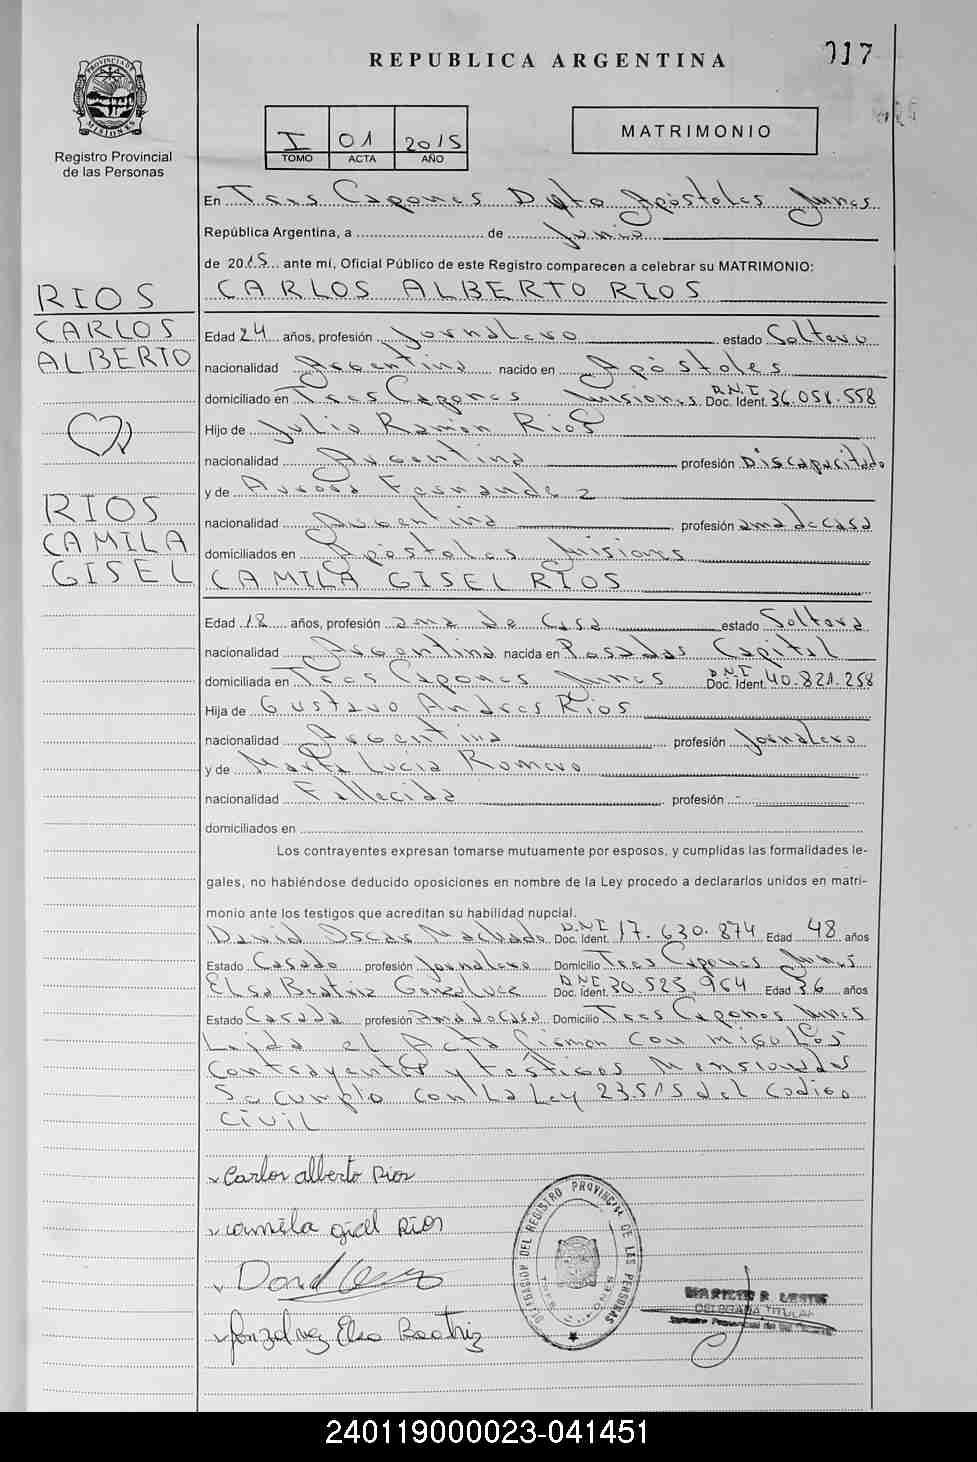 REPUBLICA ARGENTINA
017
PROVINCIA DE MISIONES
Registro Provincial
de las Personas
I 01 2015
TOMO ACTA AÑO
MATRIMONIO
En Tres Capones Dpto Apóstoles
República Argentina, a de Junio
de 2015 ante mí, Oficial Público de este Registro comparecen a celebrar su MATRIMONIO:
CARLOS ALBERTO RIOS
RIOS
CARLOS
ALBERTO
Edad 24 años, profesión Jornalero estado Soltero
nacionalidad Argentina nacido en Apóstoles
domiciliado en Tres Capones Misiones D.N.I Doc. Ident. 36.058.558
Hijo de Julio Ramón Rios
nacionalidad Argentina profesión Discapacitado
y de Aurora Fernandez
nacionalidad Argentina profesión ama de casa
domiciliados en Apóstoles Misiones
RIOS
CAMILA
GISEL
CAMILA GISEL RIOS
Edad 18 años, profesión ama de casa estado Soltera
nacionalidad Argentina nacida en Posadas Capital
domiciliada en Tres Capones D.N.I Doc. Ident. 40.821.258
Hija de Gustavo Andres Rios
nacionalidad Argentina profesión Jornalero
y de Marta Lucia Romero
nacionalidad Fallecida profesión -
domiciliados en
Los contrayentes expresan tomarse mutuamente por esposos, y cumplidas las formalidades le-
gales, no habiéndose deducido oposiciones en nombre de la Ley procedo a declararlos unidos en matri-
monio ante los testigos que acreditan su habilidad nupcial.
David Oscar Machado D.N.I Doc. Ident. 17.630.874 Edad 48 años
Estado Casado profesión Jornalero Domicilio Tres Capones
Elsa Beatriz Gonzalvez D.N.I Doc. Ident. 30.523.964 Edad 36 años
Estado Casada profesión ama de casa Domicilio Tres Capones
Leida el Acta firman con migo los
Contrayentes y testigos Mensionados
Se cumplio con la Ley 23.515 del Codigo
CIVIL
Carlos alberto Rios
camila gisel Rios
Gonzalvez Elsa Beatriz
DELEGACION DEL REGISTRO PROVINCIAL DE LAS PERSONAS
TRES CAPONES
DELEGADA TITULAR
240119000023-041451